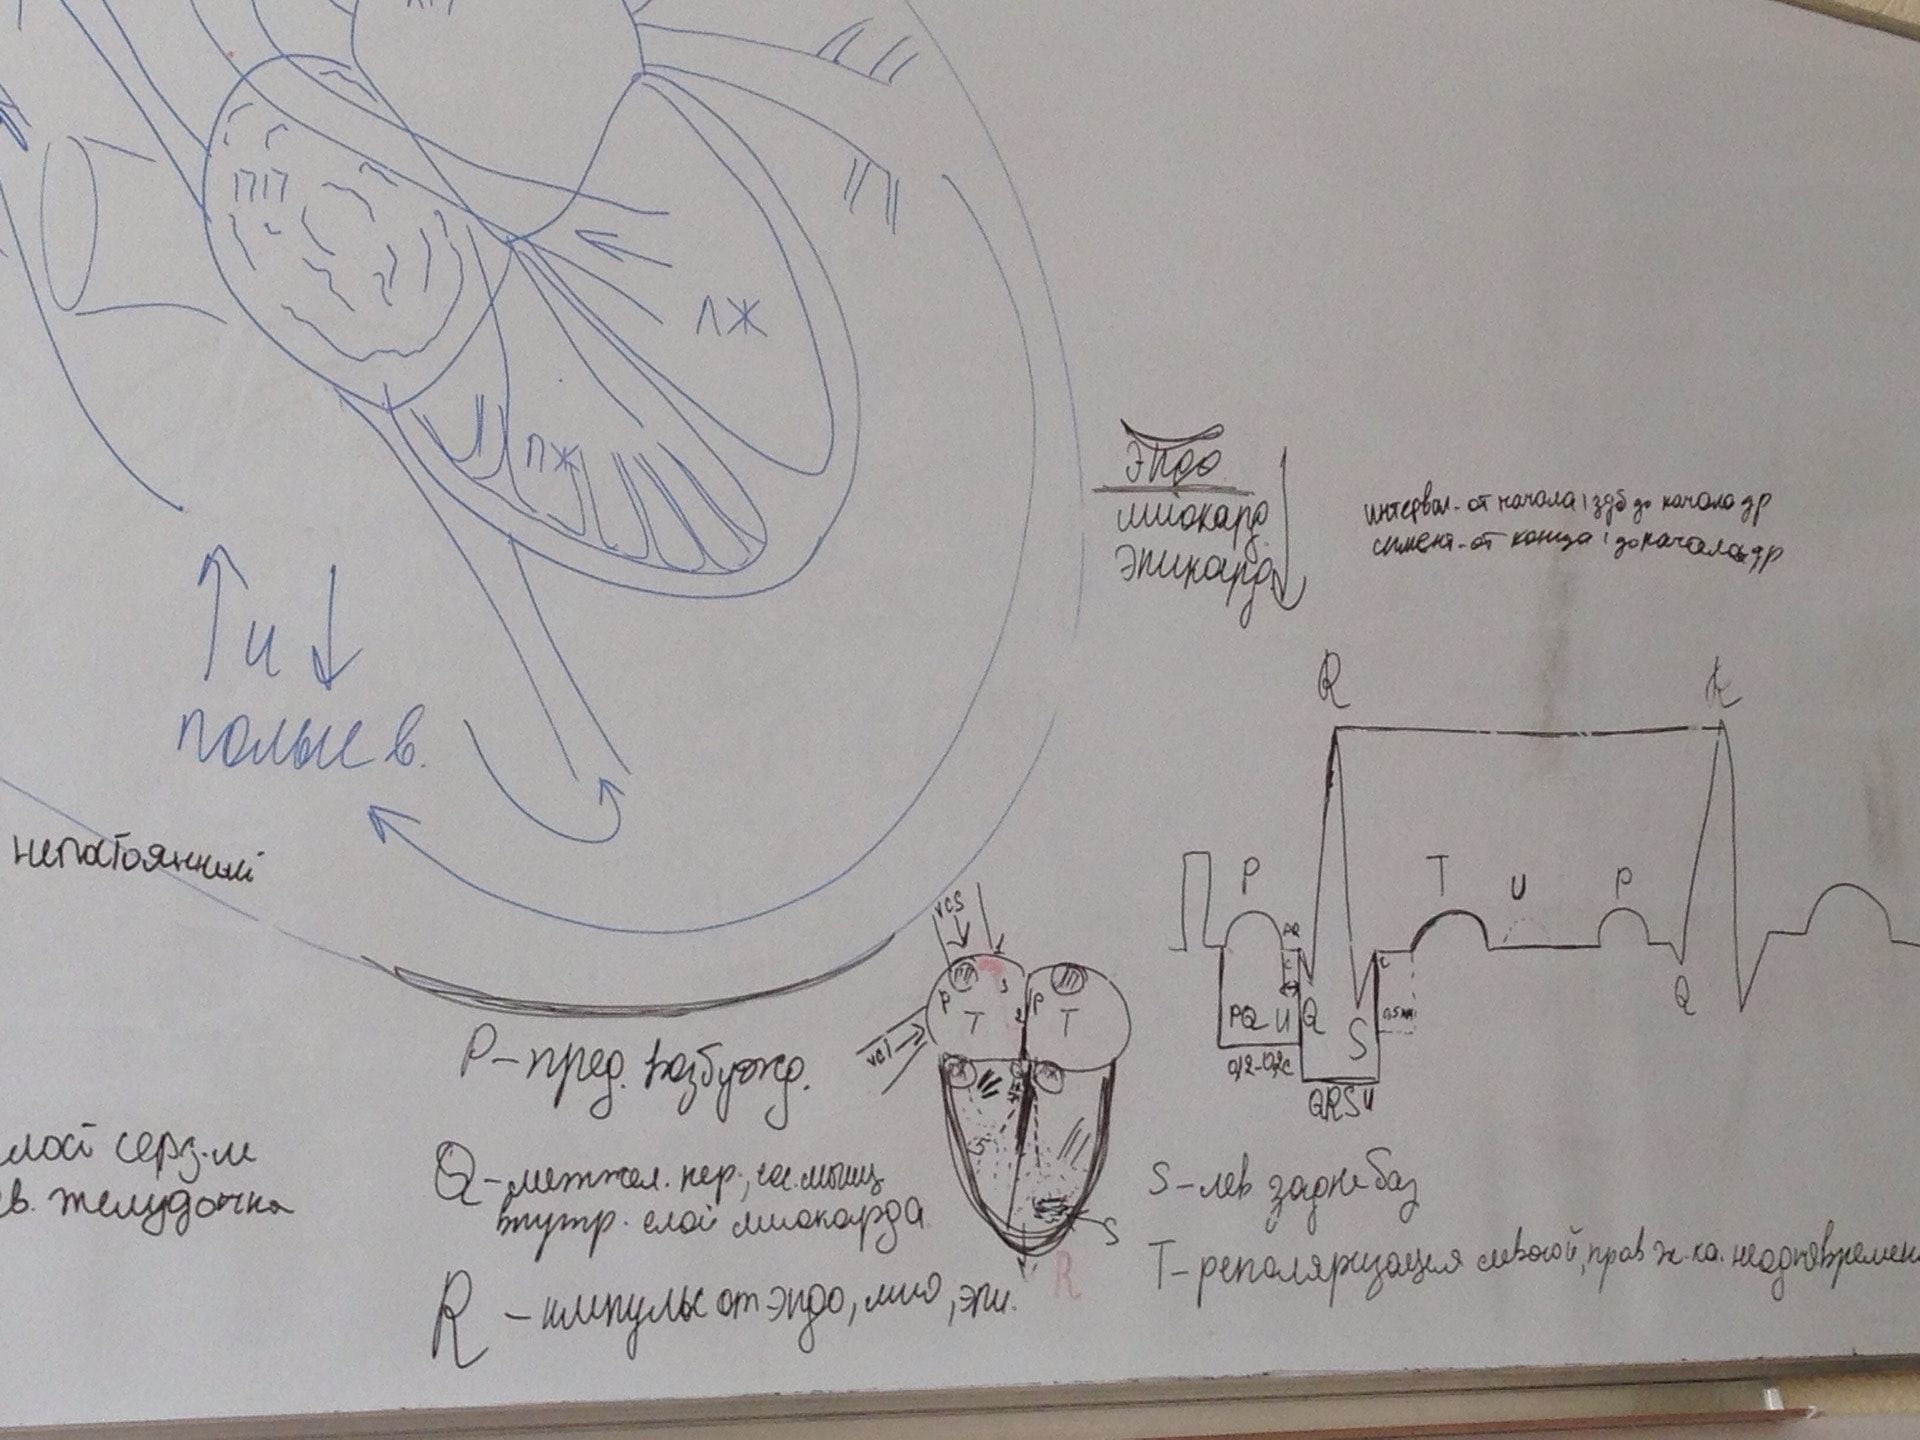 ПП
ЛЖ
ПЖ
и
полые в.
непостоянный
Эндо
миокард
эпикард
интервал - от начала 1 зуб до начала др
сегмент - от конца 1 до начала др
R
R
P
T
U
P
PQ
Q
PQ U
Q
S
0,12-0,2с
QRS U
VCS
VCI
1
P
3
T
2
P
T
5
S
R
P - пред. возбужд.
слой серд. м
в. желудочка
Q - межжел. пер., сос. мышц
внутр. слой миокарда
R - импульс от эндо, мио, эпи.
S - лев задне баз
T - реполяризация левой, прав ж-ка. неодновремен